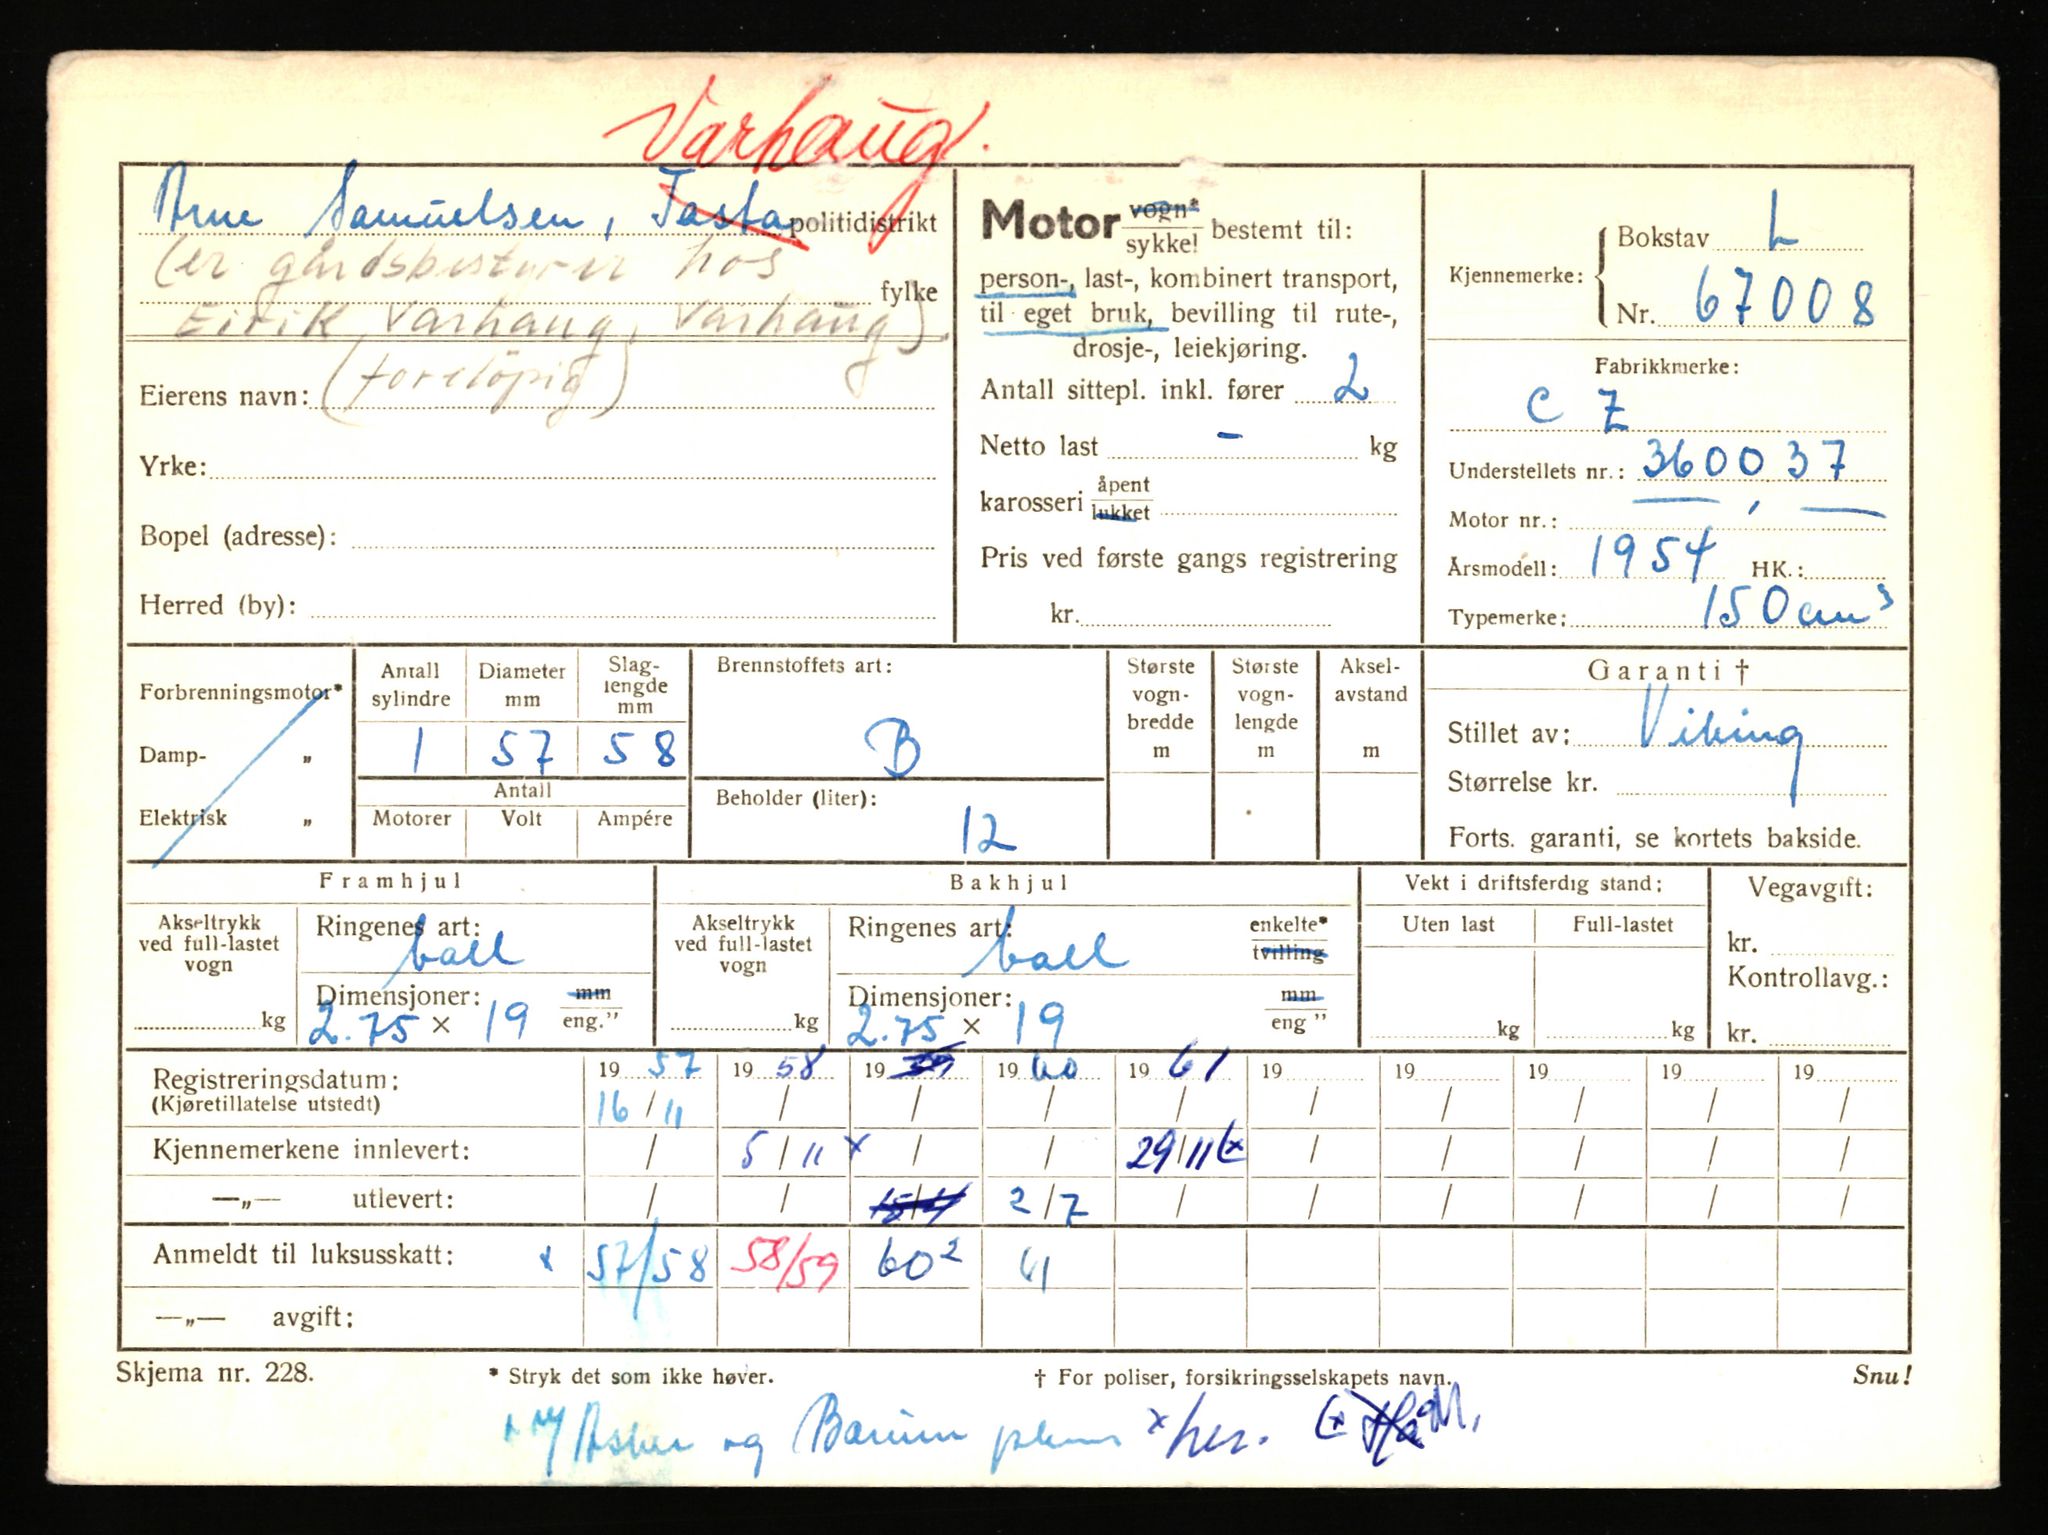 Varhaug.
Arne Samuelsen, Tasta politidistrikt
(er gårdsbestyrer hos
fylke
Eirik Varhaug, Varhaug)
Eierens navn: (foreløpig)
Yrke:
Bopel (adresse):
Herred (by):
Motor vogn* sykkel bestemt til:
person-, last-, kombinert transport,
til eget bruk, bevilling til rute-,
drosje-, leiekjøring.
Antall sittepl. inkl. fører 2
Netto last - kg
karosseri åpent lukket
Pris ved første gangs registrering
kr.
Kjennemerke: Bokstav L
Nr. 67008
Fabrikkmerke:
C Z
Understellets nr.: 360037
Motor nr.:
Årsmodell: 1954 HK.:
Typemerke: 150 cm³
Forbrenningsmotor*
Damp- „
Elektrisk „
Antall sylindre Diameter mm Slag-lengde mm
1 57 58
Antall
Motorer Volt Ampére
Brennstoffets art:
B
Beholder (liter):
12
Største vogn-bredde m
Største vogn-lengde m
Aksel-avstand m
Garanti †
Stillet av: Viking
Størrelse kr.
Forts. garanti, se kortets bakside.
Framhjul
Akseltrykk ved full-lastet vogn
kg
Ringenes art: ball
Dimensjoner: mm
2.75 × 19 eng."
Bakhjul
Akseltrykk ved full-lastet vogn
kg
Ringenes art: ball enkelte* tvilling
Dimensjoner: mm
2.75 × 19 eng "
Vekt i driftsferdig stand:
Uten last Full-lastet
kg kg
Vegavgift:
kr.
Kontrollavg.:
kr.
Registreringsdatum: 19 57 19 58 19 59 19 60 19 61 19 19 19 19 19
(Kjøretillatelse utstedt) 16/11 / / / / / / / / /
Kjennemerkene innlevert: / 5/11 x / / 29/11 (x / / / / /
—„— utlevert: / / 15/4 2/7 / / / / / /
Anmeldt til luksusskatt: x 57/58 58/59 60² 61
—„— avgift:
Skjema nr. 228. * Stryk det som ikke høver. † For poliser, forsikringsselskapets navn. Snu!
Asker og Bærum x her. (x Hå